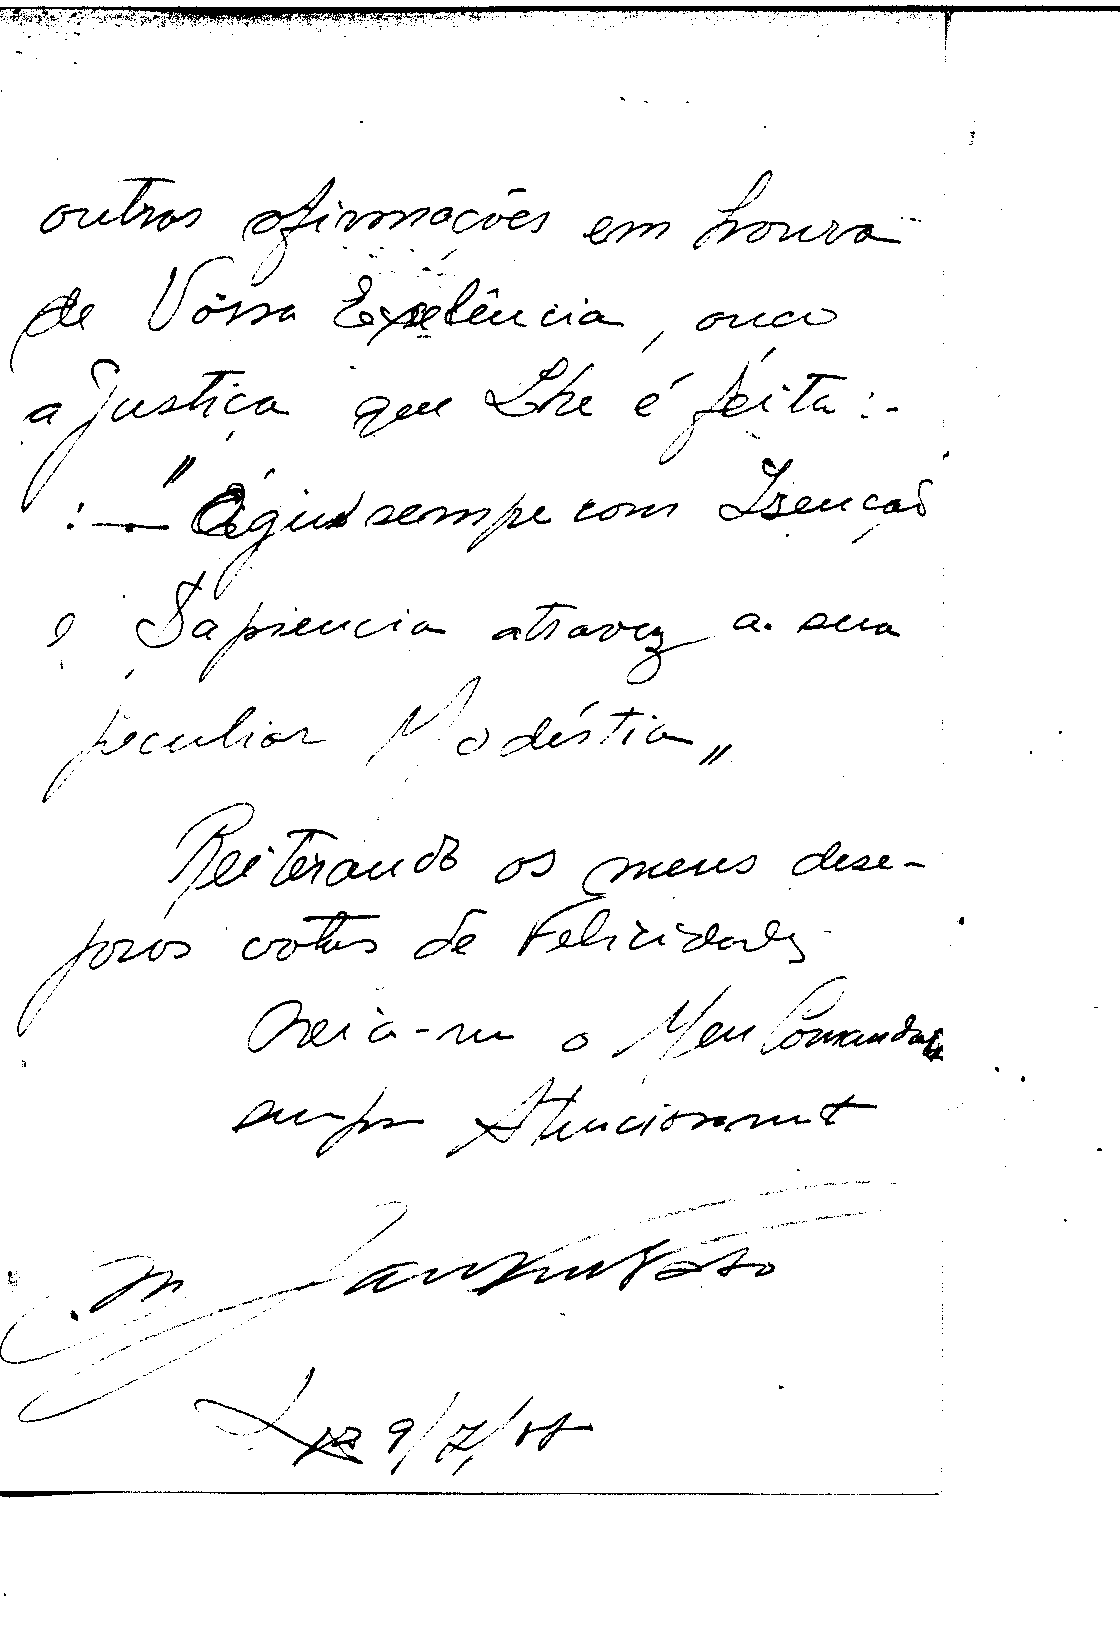 outras afirmações em honra
de Vóssa Exelência, ouço
a justiça que Lhe é feita:-
:— "Agiu sempre com Isenção
e Sapiencia atravez a sua
peculiar Modéstia"
Reiterando os meus dese-
josos votos de Felicidades
creia-me o Meu Comandante
sempre Atenciosamente
M.
Lx 9/7/